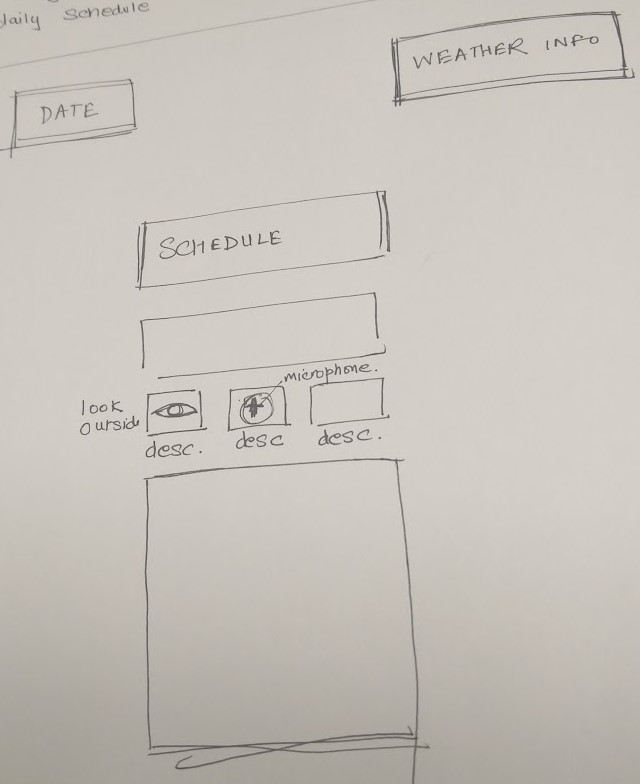 daily Schedule
WEATHER INFO
DATE
SCHEDULE
microphone.
look
oursid
desc.
desc
desc.